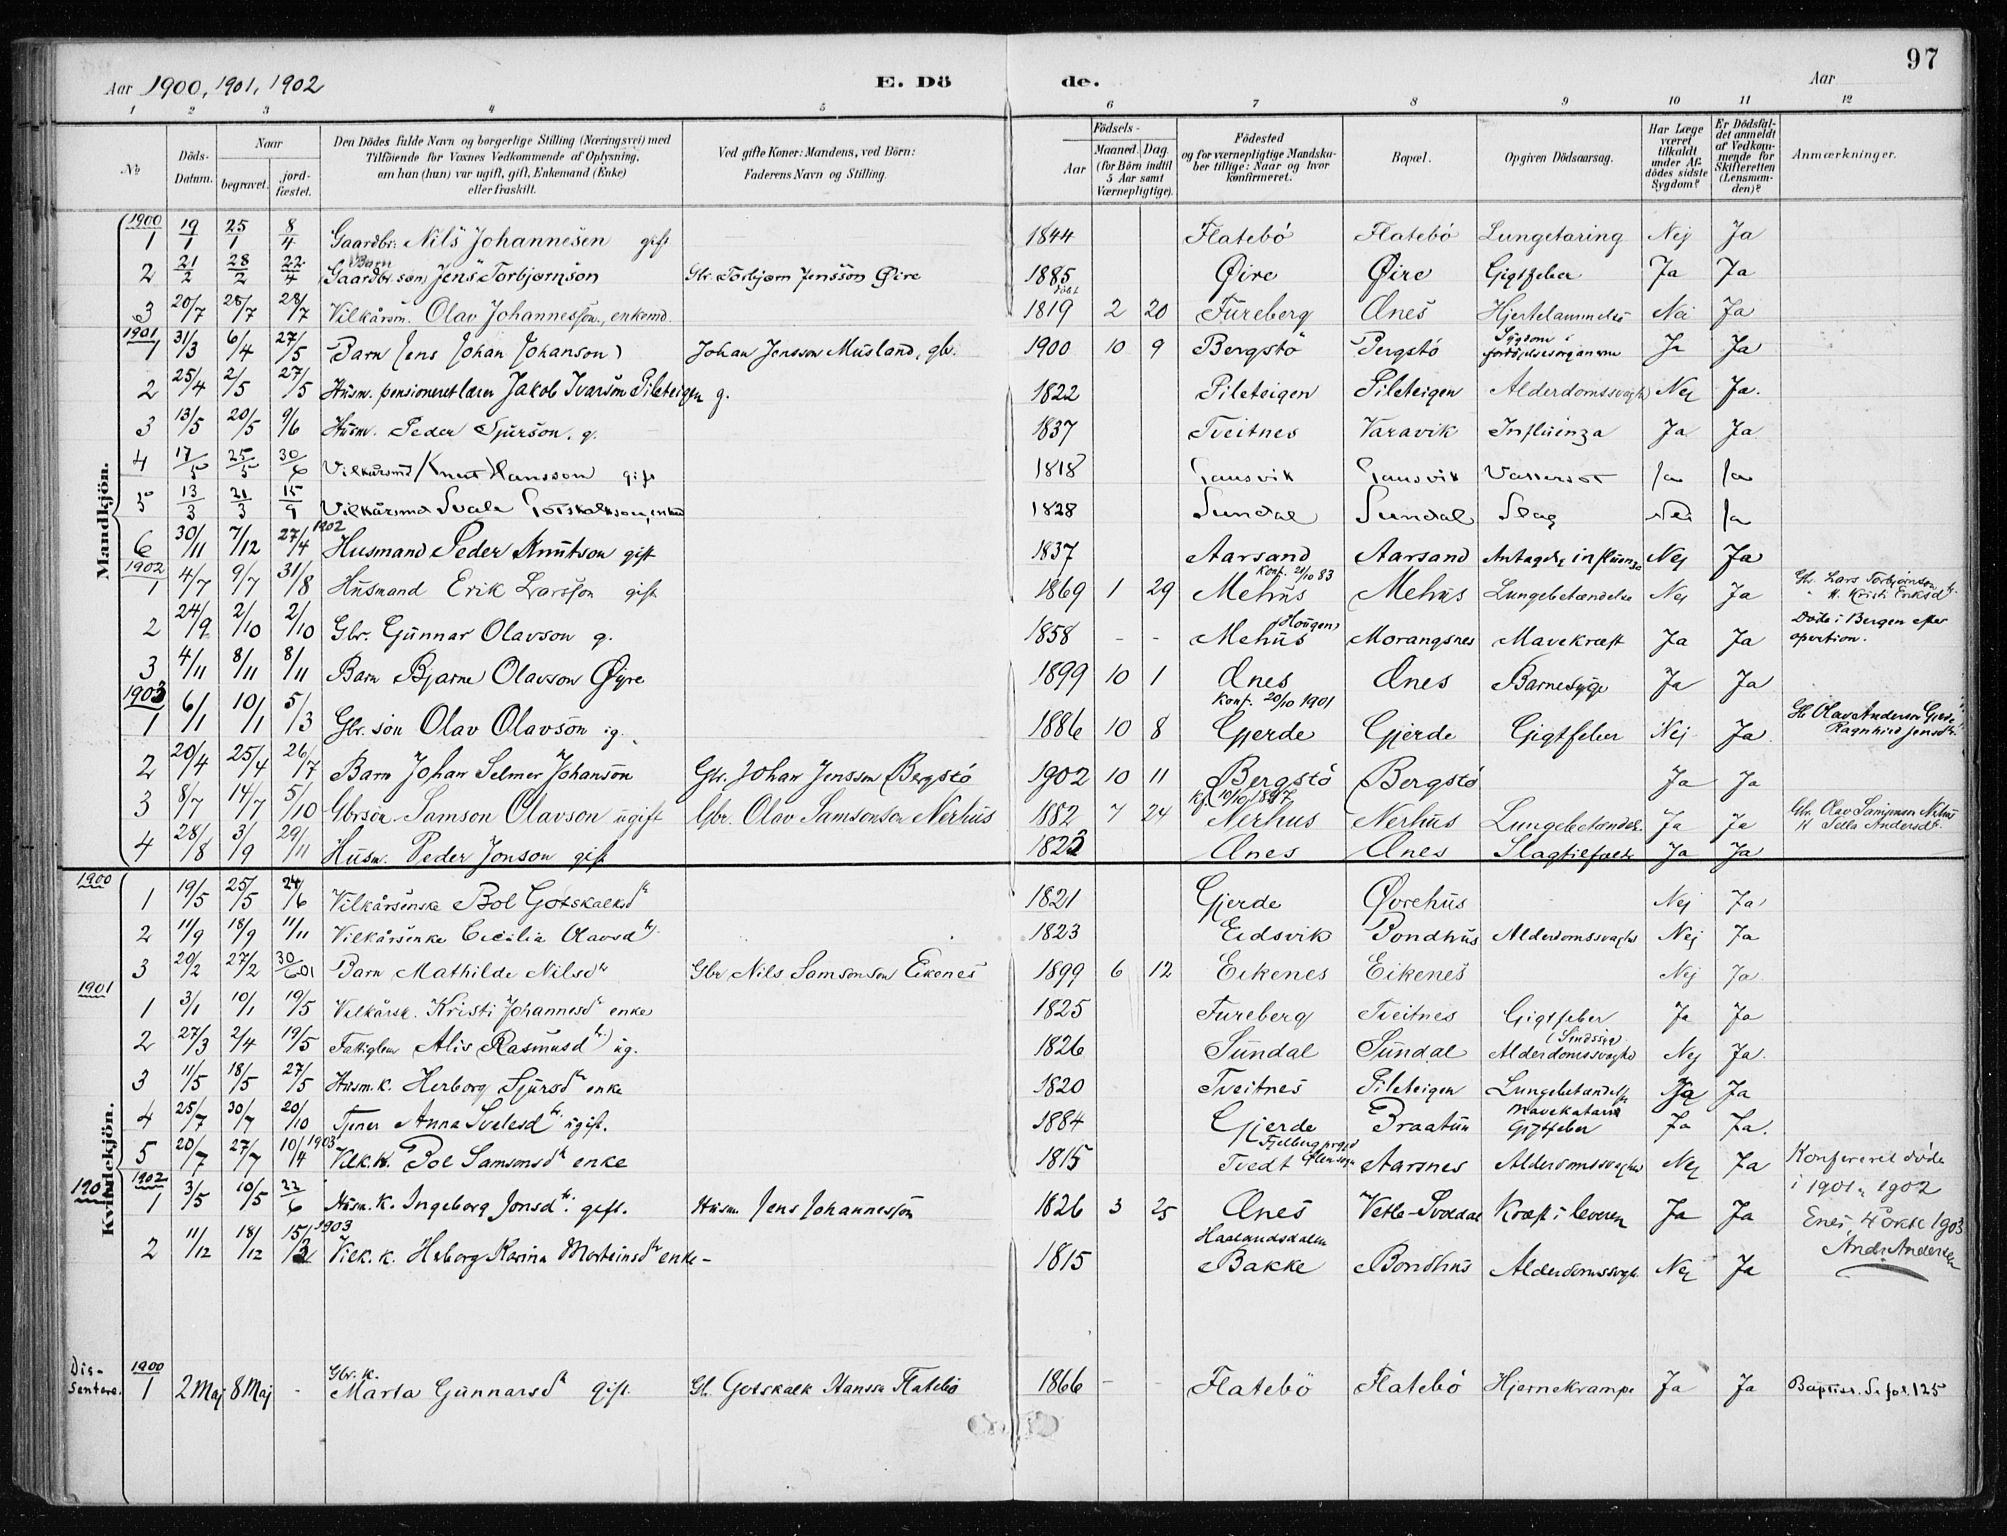 97
Aar 1900, 1901, 1902 E. Dö de. Aar
1 2 3 4 5 6 7 8 9 10 11 12
No
Döds-Datum.
Naar
begravet.
jord-fæstet.
Den Dödes fulde Navn og borgerlige Stilling (Næringsvei) med
Tilföiende for Voxnes Vedkommende af Oplysning,
om han (hun) var ugift, gift, Enkemand (Enke)
eller fraskilt.
Ved gifte Koner: Mandens, ved Börn:
Faderens Navn og Stilling.
Födsels-
Aar
Maaned. Dag.
(for Börn indtil
5 Aar samt
Værnepligtige).
Födested
og for værnepligtige Mandska-
ber tillige: Naar og hvor
konfirmeret.
Bopæl.
Opgiven Dödsaarsag.
Har Læge
været
tilkaldt
under Af-
dödes sidste
Sygdom?
Er Dödsfal-
det anmeldt
af Vedkom-
mende for
Skifteretten
(Lensman-
den)?
Anmærkninger.
Mandkjön.
1900
1 19/1 25/1 8/4 Gaardbr. Nils Johannesen gift 1844 Flatebö Flatebö Lungetæring Nej Ja
2 21/2 28/2 22/4 Gaardbr. søn Barn Jens Torbjørnson Gbr. Torbjørn Jensson Øire 1885 Øire Øire Gigtfeber Ja Ja
3 20/7 26/7 28/7 Vilkårsm. Olav Johannesson, enkemd. 1819 2 20 Fureberg Ænes Hjertelammelse Nei Ja
1901
1 31/3 6/4 27/5 Barn Jens Johan Johanson Johan Jensson Musland, gbr. 1900 10 9 Bergstö Bergstö Sygdom i fordöielsesorganerne Ja Ja
2 25/4 2/5 27/5 Husm. pensioneret lærer Jakob Ivarson Pileteigen g. 1822 Pileteigen Pileteigen Alderdomssvaghd Nej Ja.
3 13/5 20/5 9/6 Husm. Peder Sjurson. g. 1837 Tveitnes Varavik Influenza Ja Ja
4 17/5 25/5 30/6 Vilkårsmd Knut Hansson gift 1818 Gausvik Gausvik Vattersot Ja Ja
5 13/3 21/3 15/9 Vilkårsmd Svale Gotskalkson, enkmd 1828 Sundal Sundal Slag Nei Ja
6 30/11 7/12 27/4 1902 Husmand Peder Knutson gift 1837 Aarsand Aarsand Antagelig influenza Nej Ja
1902
1 4/7 9/7 31/8 Husmand Erik Larsson gift 1869 1 29 Konf. 21/10 83 Mehus Mehus Lungebetændelse Nej Ja Gbr. Lars Torbjørnson H. Kristi Eriksdtr.
2 24/9 2/10 2/10 Gbr. Gunnar Olavson g. 1858 - - Mehus (Hougen) Morangsnes Mavekræft Ja Ja Døde i Bergen efter opertion.
3 4/11 8/11 8/11 Barn Bjarne Olavson Øyre 1899 10 1 Ænes Ænes Barnesyge Ja Ja
1903
1 6/1 10/1 5/3 Gbr. søn Olav Olavson ug. 1886 10 8 Konf. 20/10 1901 Gjerde Gjerde Gigtfeber Nej Ja Gbr Olav Anderson Gjerde Ragnhild Jensdtr
2 20/4 25/4 26/7 Barn Johan Selmer Johanson Gbr. Johan Jensson Bergstö 1902 10 11 Bergstö Bergstö Ja Ja
3 8/7 14/7 5/10 Gbrsøn. Samson Olavson ugift Gbr. Olav Samsonson Nerhus 1882 7 24 Kf. 10/10 1897 Nerhus Nerhus Lungebetændels. Ja Ja Gbr. Olav Samsonson Nerhus H Sella Andersdtr.
4 28/8 3/9 29/11 Husm. Peder Jonson gift 1823 Ænes Ænes Slagtilfælde Ja Ja
Kvindekjön.
1900
1 19/5 25/5 24/6 Vilkårsenke Bol Gotskalksdtr 1821 Gjerde Øvrehus Nej Ja
2 11/9 18/9 11/11 Vilkårsenke Cicilia Olavsdtr. 1823 Eidsvik Bondhus Alderdomssvaghd Nej Ja
3 20/2 27/2 30/6 01 Barn Mathilde Nilsdtr Gbr. Nils Samsonson Eikenes 1899 6 12 Eikenes Eikenes Nej Ja.
1901
1 3/1 10/1 19/5 Vilkårsk. Kristi Johannesdtr enke 1825 Fureberg Tveitnes Gigtfeber Ja Ja
2 27/3 2/4 19/5 Fattiglem Alis Rasmusdtr. ug. 1826 Sundal Sundal Alderdomssvaghd (Sindssyg) Nej Ja.
3 11/5 18/5 27/5 Husm.k. Herborg Sjursdtr enke 1820 Tveitnes Pileteigen Lungebetændelse Ja Ja
4 25/7 30/7 20/10 Tjener Anna Svalesdtr. ugift. 1884 Gjerde Braatun Mavekatarr Gigtfeber Ja Ja.
5 20/7 27/7 10/4 1903 Vilk.k. Bol Samsonsdtr enke 1815 Tvedt Fjelberg prgd Ølensogn Aarsnes Alderdomssvaghd Nej Ja Konfereret døde
1902
1 3/5 10/5 22/6 Husm.k. Ingeborg Jonsdtr. gift. Husm. Jens Johannesson 1826 3 25 Ænes Vetle-Svoldal Kræft i leveren Ja Ja i 1901 & 1902
2 11/12 18/12 15/3 1903 Vilk.k. Herborg Karina Morteinsdtr enke - 1815 Haalandsdalen Bakke Bondhus Alderdomssvagh. Nej Ja Enes, 4 okt 1903
And. Andersen
Dis-
sentere. 1900
1 2 Maj 8 Maj - Gbr. k. Marta Gunnarsdtr gift. Gb. Gotskalk Hansen Flatebö 1866 - - Flatebö Flatebö Hjernekrampe Ja Ja Baptist. Se fol. 125